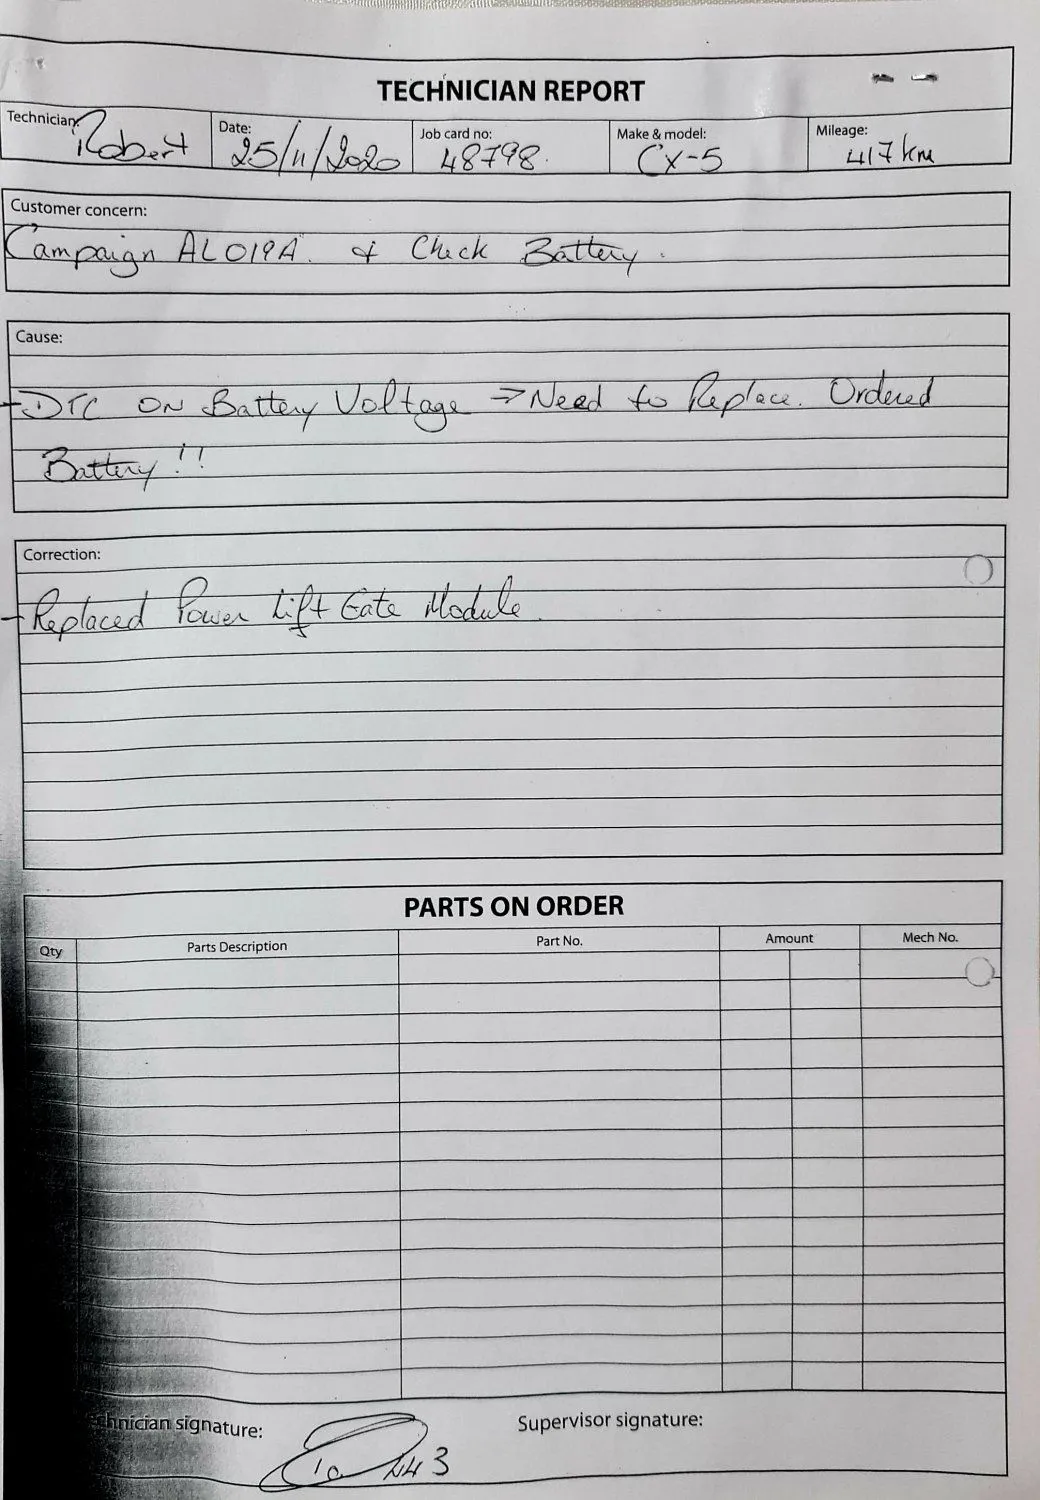 TECHNICIAN REPORT
Technician: Robert
Date: 25/11/2020
Job card no: 48798.
Make & model: CX-5
Mileage: 417 km
Customer concern:
Campaign AL019A. & Check Battery.
Cause:
- DTC ON Battery Voltage → Need to Replace. Ordered
Battery!!
Correction:
- Replaced Power Lift Gate Module.
PARTS ON ORDER
Qty Parts Description Part No. Amount Mech No.
chnician signature:
Supervisor signature: